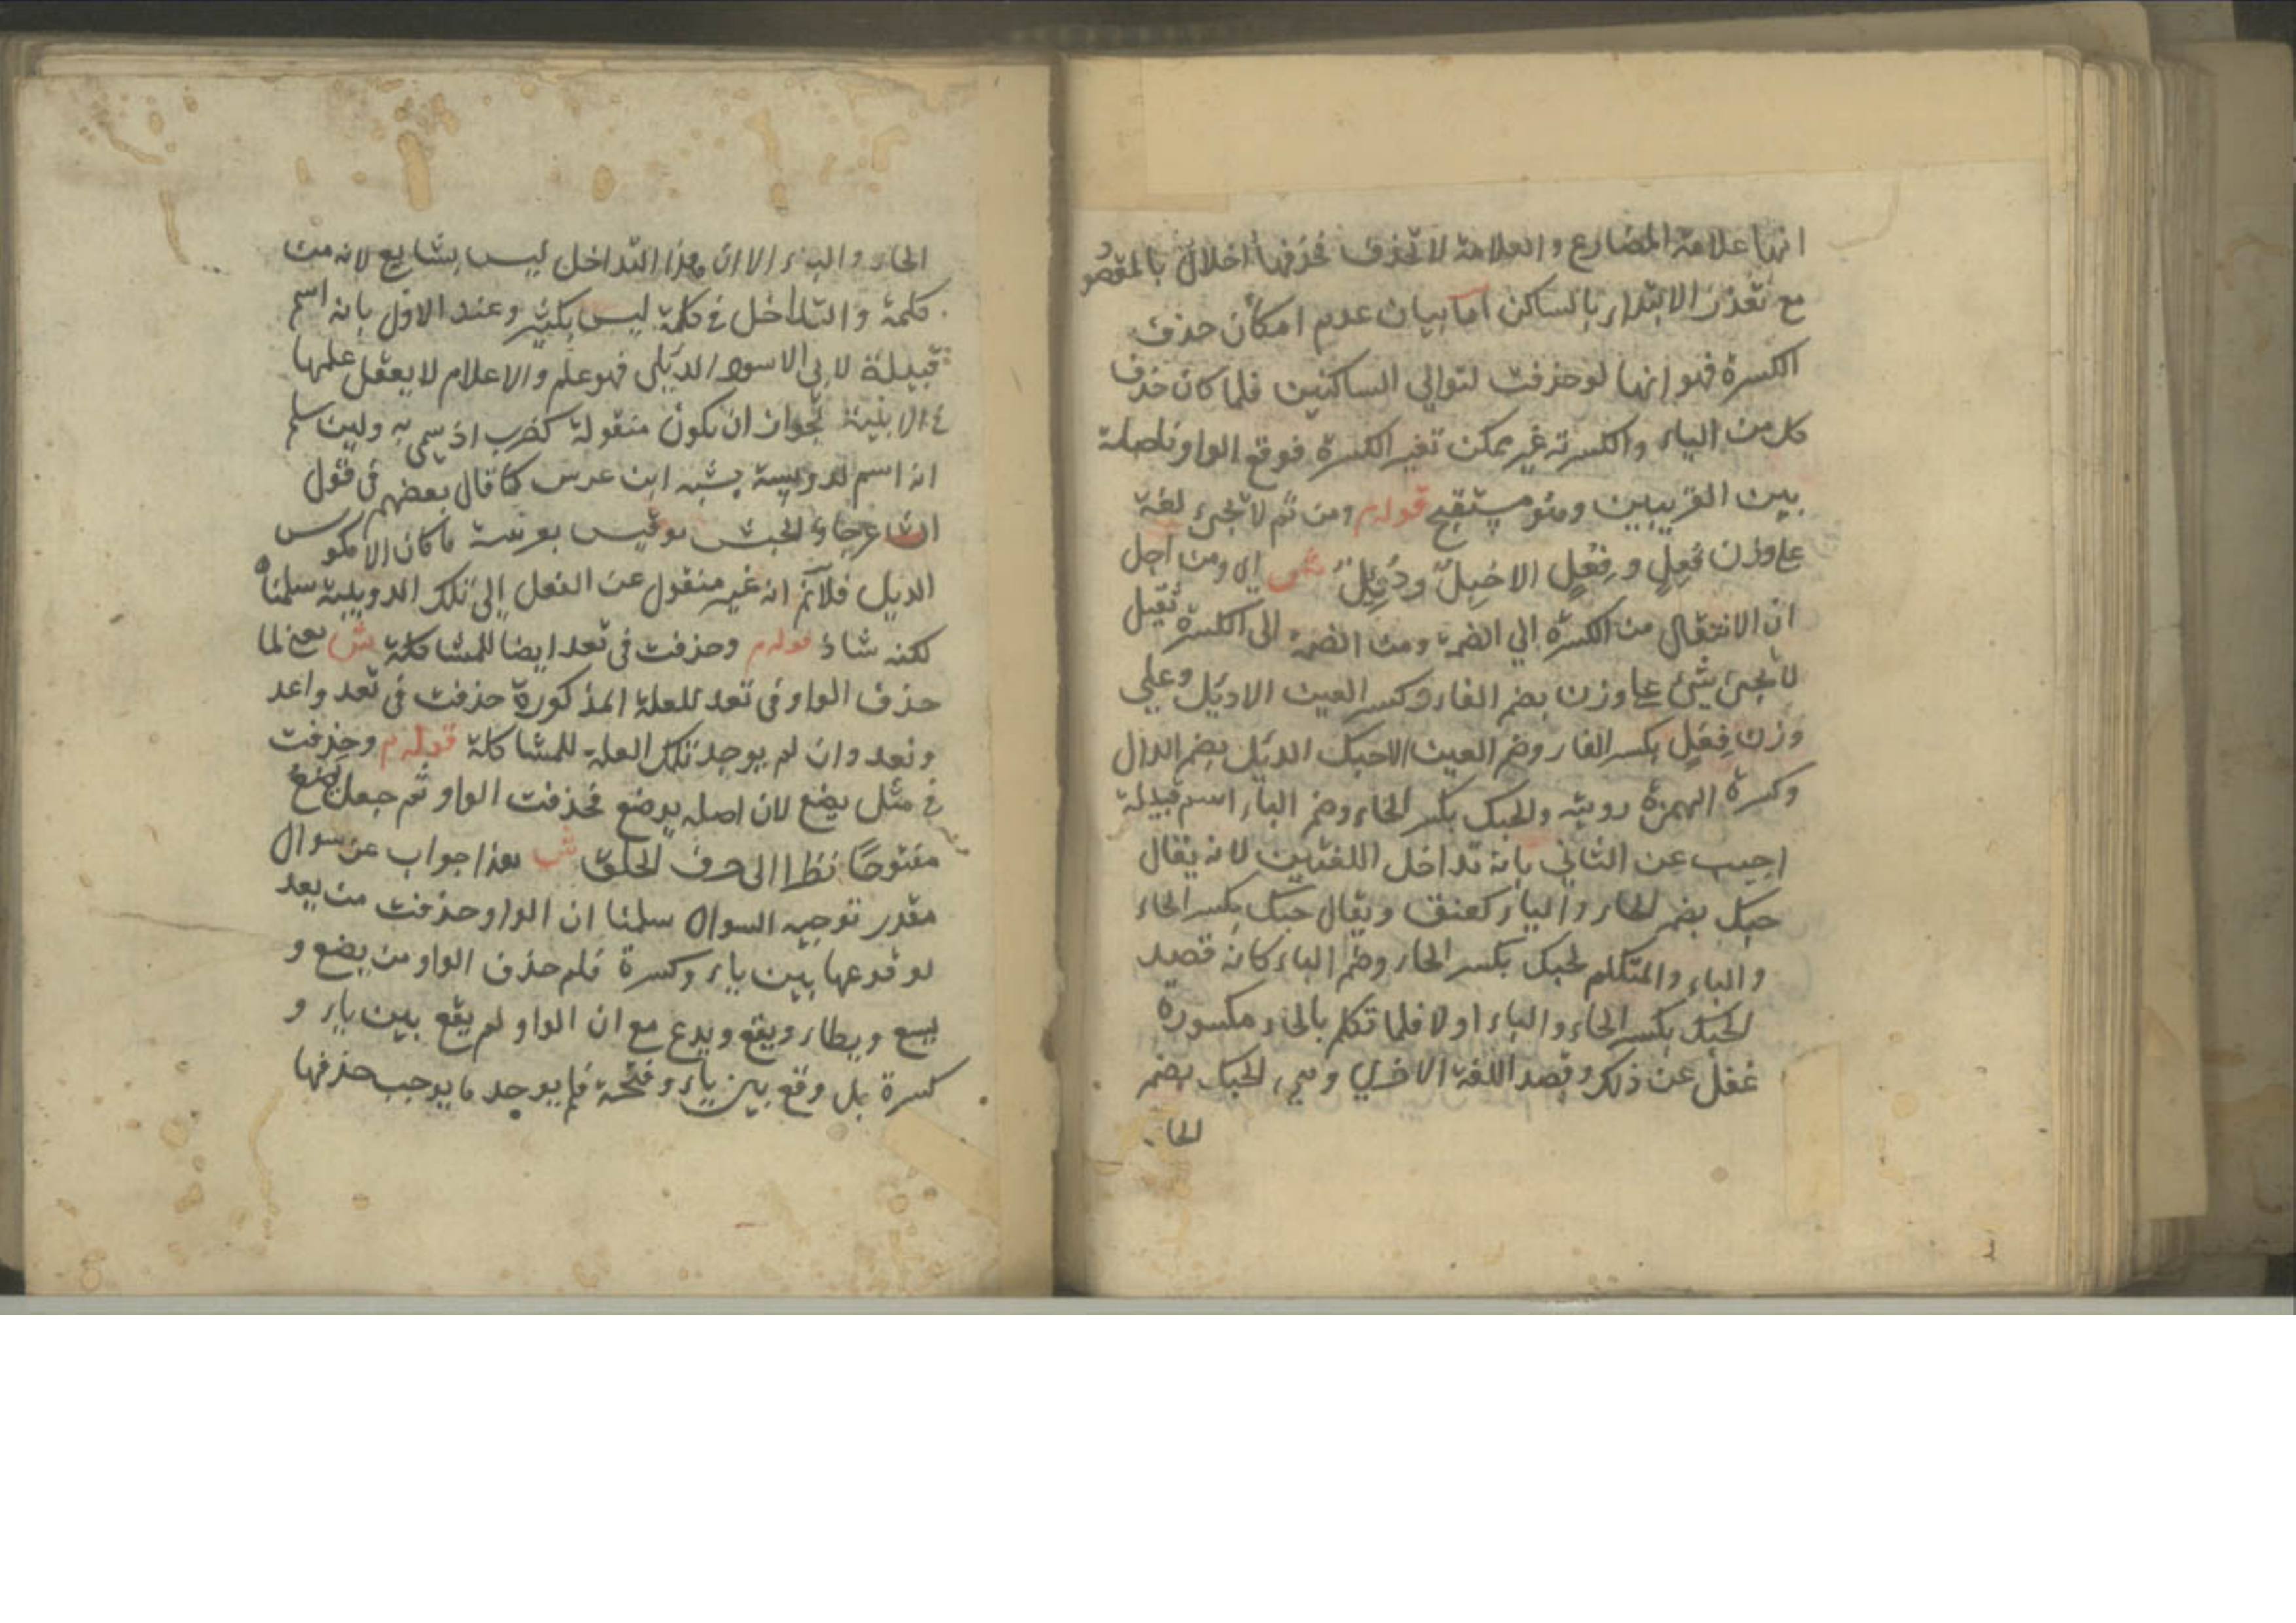 انها علامة المضارع والعلامة لا تحذف فحذفها اخلال بالمقصو
مع تعذر الابتداء بالساكن اما بيان عدم امكان حذف
الكسرة فهو انها لو حذفت لتوالي الساكنين فلما كان حذف
كل من الياء والكسرة غير ممكن تغير الكسرة فوقع الواو فاصلة
بين القريبين وهو مستقبح قوله م ومن ثم لا تجئ لغة
علي وزن فُعِلٍ وفِعُلٍ الا حِبُكٌ ودُئِلٌ ش اي ومن اجل
ان الانتقال من الكسرة الي الضمة ومن الضمة الى الكسرة ثقيل
لا تجئ شئ علي وزن بضم الفاء وكسر العين الا دئل وعلي
وزن فِعُلٍ بكسر الفاء وضم العين الا حبك الدئل بضم الدال
وكسرة الهمزة دويبة والحبك بكسر الحاء وضم الباء اسم قبيلة
اجيب عن الثاني بانه تداخل اللغتين لانه يقال
حبك بضم الحاء والباء كعنق ويقال حبك بكسر الحاء
والباء والمتكلم لحبك بكسر الحاء وضم الباء كانه قصد
لحبك بكسر الحاء والباء اولا فلما تكلم بالحاء مكسورة
غفل عن ذلك وقصد اللغة الاخري وهي الحبك بضم
الحاء
الحاء والباء الا ان هذا التداخل ليس بشايع لانه من
كلمة والتداخل في كلمة ليس بكثير وعند الاول بانه اسم
قبيلة لابي الاسود الدئلي فهو علم والاعلام لا يعقل عليها
في الابنية لجواز ان يكون منقولة كضرب اذ سمي به ولين سلم
انه اسم لدويبة يشبه ابن عرس كما قال بعضهم في قول
الشاعر جاؤا لجيش لو قيس بعرسة ما كان الا كمو س
الديل فلانم انه غير منقول عن الفعل إلى تلك الدويبة سلمنا ه
لكنه شاذ قوله م وحذفت في تعد ايضا للمشاكلة ش يعني لما
حذف الواو في تعد للعلة المذكورة حذفت في تعد واعد
ونعد وان لم يوجد تلك العلة للمشاكلة قوله م وحذفت
في مثل يضع لان اصله يوضع فحذفت الواو ثم جعل يضع
مفتوحًا نظرا الى حرف الحلق ش هذا جواب عن سوال
مقدر توجيه السوال سلمنا ان الواو حذفت من يعد
لوقوعها بين ياء وكسرة فلم حذف الواو من يضع و
يسع ويطاء ويقع ويدع مع ان الواو لم يقع بين ياء و
كسرة بل وقع بين ياء وفتحة فلم يوجد ما يوجب حذفها